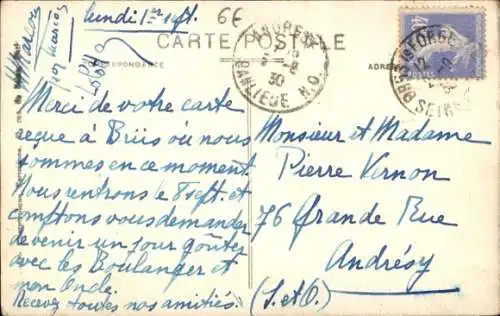 lundi 1er sept.
6E
CARTE POSTALE
CORRESPONDANCE
Merci de votre carte
reçue à Briis où nous
sommes en ce moment.
Nous rentrons le 8 sept. et
comptons vous demander
de venir un jour goûter
avec les Boulanger et
mon Oncle.
Recevez toutes nos amitiés.
Monsieur et Madame
Pierre Vernon
76 Grande Rue
Andrésy
(S. et O.)